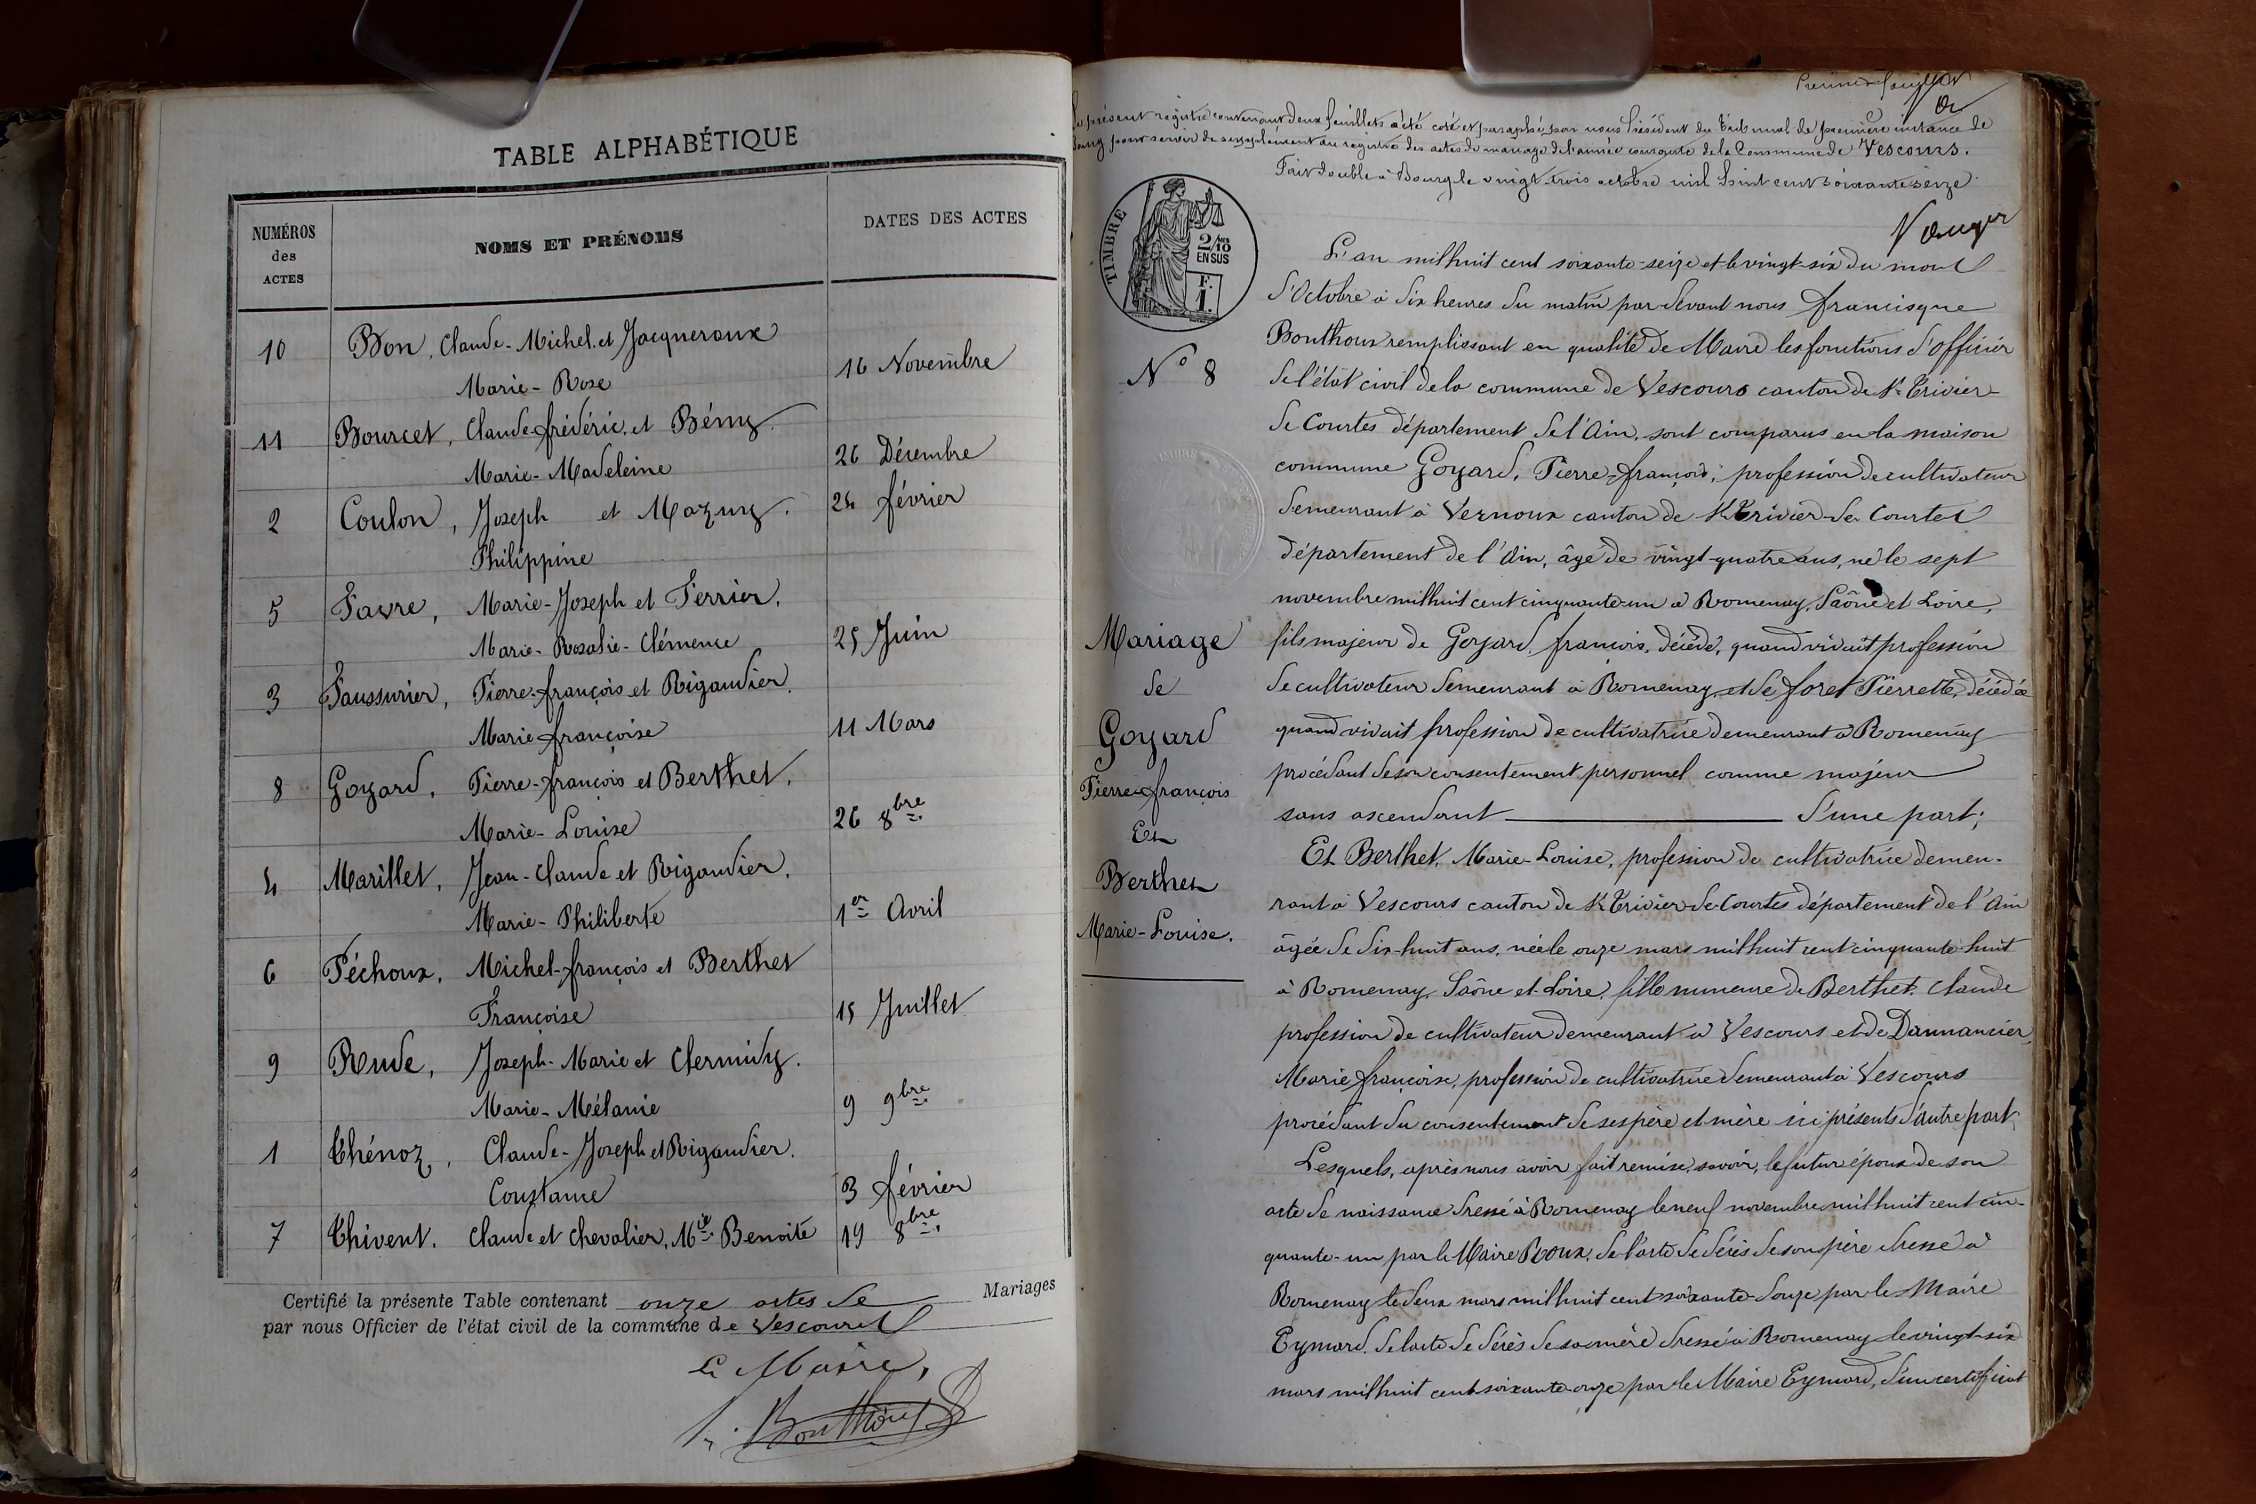 TABLE ALPHABÉTIQUE
NUMÉROS des ACTES
NOMS ET PRÉNOMS
DATES DES ACTES
10 Bon, Claude-Michel, et Jacqueroux
Marie-Rose 16 Novembre
11 Bourcet, Claude-frédéric, et Bémy.
Marie-Madeleine 26 Décembre
2 Coulon, Joseph et Mazuy. 24 février
Philippine
5 Favre, Marie-Joseph et Perrier.
Marie-Rosalie-Clémence 25 Juin
3 Faussurier, Pierre-françois et Rigaudier.
Marie françoise 11 Mars
8 Goyard, Pierre-françois et Berthet,
Marie-Louise 26 8bre
4 Marillet, Jean-Claude et Rigaudier.
Marie-Philiberte 1er Avril
6 Péchoux, Michel-françois et Berthet
Françoise 15 Juillet
9 Rude, Joseph-Marie et Chermidy.
Marie-Mélanie 9 9bre
1 Thénoz, Claude-Joseph et Rigaudier.
Constance 3 février
7 Thivent. Claude et Chevalier, Mie Benoîte 19 8bre
Certifié la présente Table contenant onze actes de Mariages
par nous Officier de l'état civil de la commune de Vescours
Le Maire,
Bouthoux
Le présent registre contenant deux feuillets a été coté et paraphé par nous Président du Tribunal de première instance de
Bourg pour servir de supplément au registre des actes de mariage de l'année courante de la Commune de Vescours.
Fait double à Bourg le vingt trois octobre mil huit cent soixante seize
TIMBRE
2/10 EN SUS
F. 1.
N° 8
Mariage
de
Goyard
Pierre-françois
Et
Berthet
Marie-Louise.
L'an mil huit cent soixante-seize et le vingt-six du mois
d'Octobre à dix heures du matin par devant nous francisque
Bouthoux remplissant en qualité de Maire les fonctions d'officier
de l'état civil de la commune de Vescours canton de St Trivier
de Courtes département de l'Ain, sont comparus en la maison
commune Goyard, Pierre-françois, profession de cultivateur
demeurant à Vernoux canton de St Trivier-de Courtes
département de l'Ain, âgé de vingt-quatre ans, né le sept
novembre mil huit cent cinquante-un à Romenay, Saône et Loire,
fils majeur de Goyard, françois, décédé, quand vivait profession
de cultivateur demeurant à Romenay et de foret Pierrette, décédée
quand vivait profession de cultivatrice demeurant à Romenay
procédant de son consentement personnel comme majeur
sans ascendant d'une part;
Et Berthet, Marie-Louise, profession de cultivatrice demeu-
rant à Vescours canton de St Trivier-de-Courtes département de l'Ain
âgée de dix-huit ans, née le onze mars mil huit cent cinquante-huit
à Romenay, Saône et Loire, fille mineure de Berthet, Claude
profession de cultivateur demeurant à Vescours et de Dannancier,
Marie françoise, profession de cultivatrice demeurant à Vescours
procédant du consentement de ses père et mère ici présents d'autre part,
Lesquels, après nous avoir fait remise, savoir, le futur époux de son
acte de naissance dressé à Romenay le neuf novembre mil huit cent cin-
quante-un par le Maire Roux, de l'acte de décès de son père dressé à
Romenay le deux mars mil huit cent soixante-douze par le Maire
Eymard, de l'acte de décès de sa mère dressé à Romenay le vingt-six
mars mil huit cent soixante-onze par le Maire Eymard, d'un certificat